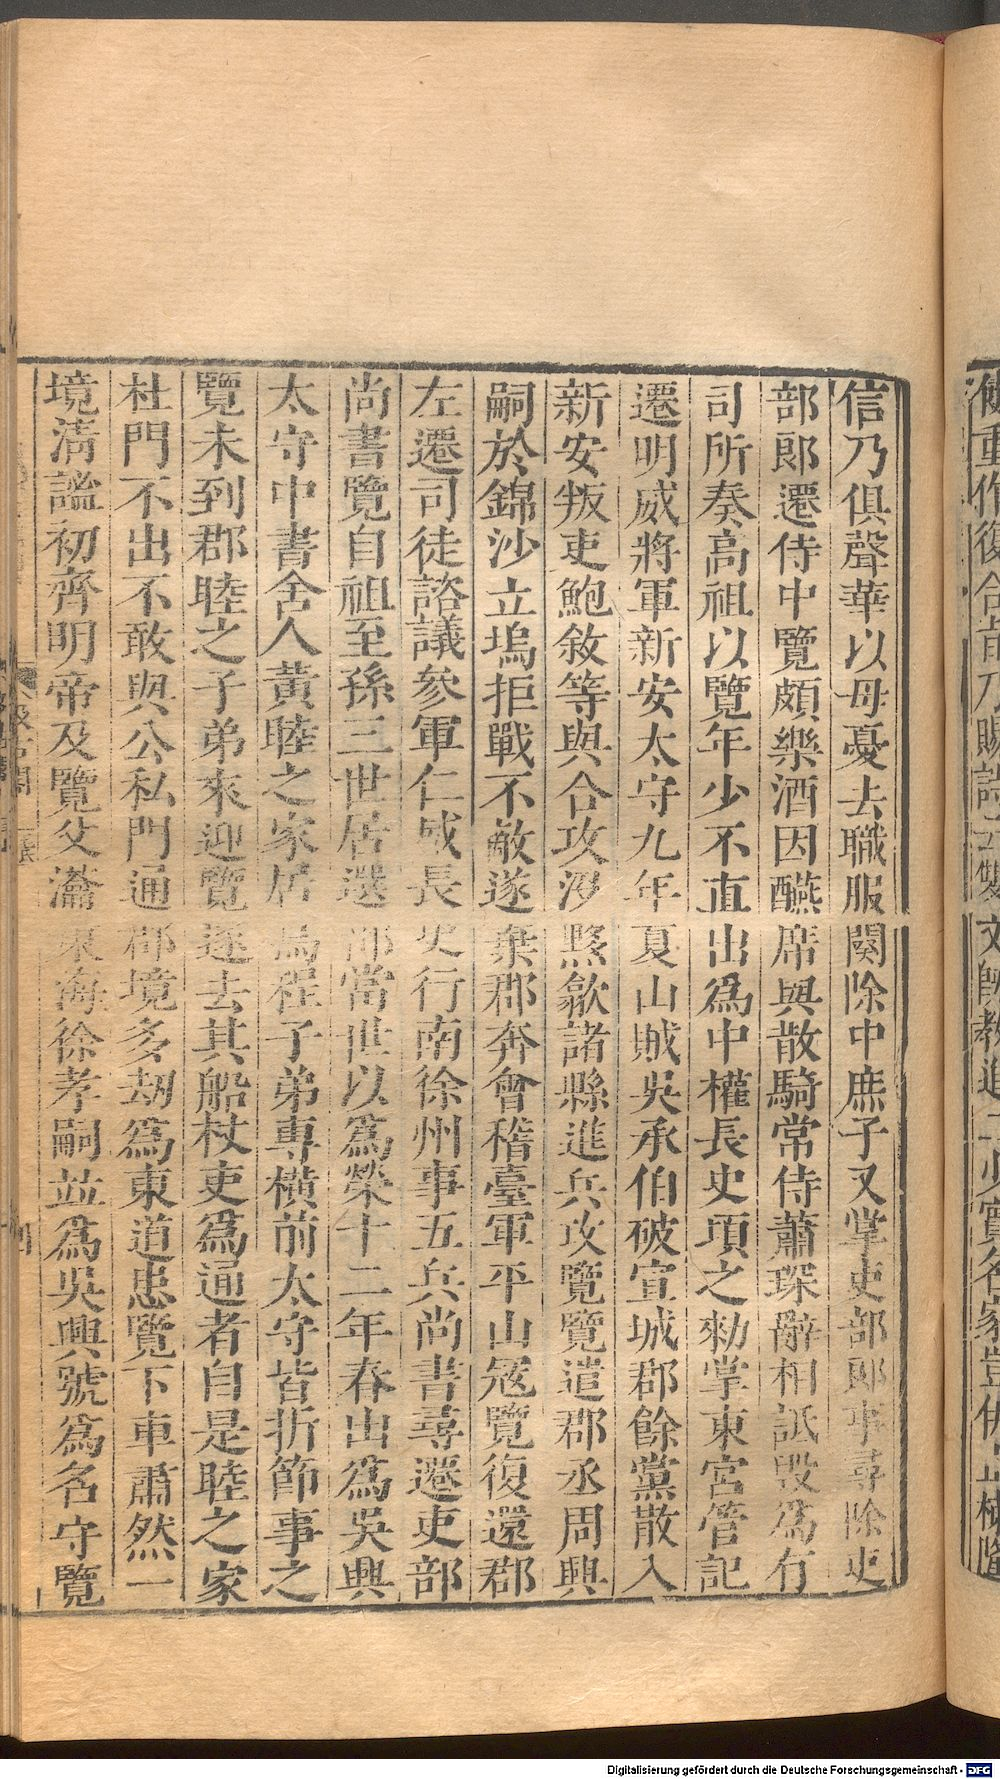 信乃俱聲華以母憂去職服闋除中庶子又掌吏部郎事尋除吏
部郎遷侍中覽頗樂酒因醼席與散騎常侍蕭琛辭相詆毀爲有
司所奏高祖以覽年少不直出爲中權長史頃之勑掌東宮管記
遷明威將軍新安太守九年夏山賊吳承伯破宣城郡餘黨散入
新安叛吏鮑敘等與合攻沒黟歙諸縣進兵攻覽覽遣郡丞周興
嗣於錦沙立塢拒戰不敵遂棄郡奔會稽臺軍平山寇覽復還郡
左遷司徒諮議參軍仁威長史行南徐州事五兵尚書尋遷吏部
尚書覽自祖至孫三世居選部當世以爲榮十二年春出爲吳興
太守中書舍人黃睦之家居烏程子弟專橫前太守皆折節事之
覽未到郡睦之子弟來迎覽逐去其船杖吏爲通者自是睦之家
杜門不出不敢與公私門通郡境多劫爲東道患覽下車肅然一
境淸謐初齊明帝及覽父瀹東海徐孝嗣並爲吳興號爲名守覽
Digitalisierung gefördert durch die Deutsche Forschungsgemeinschaft - DFG